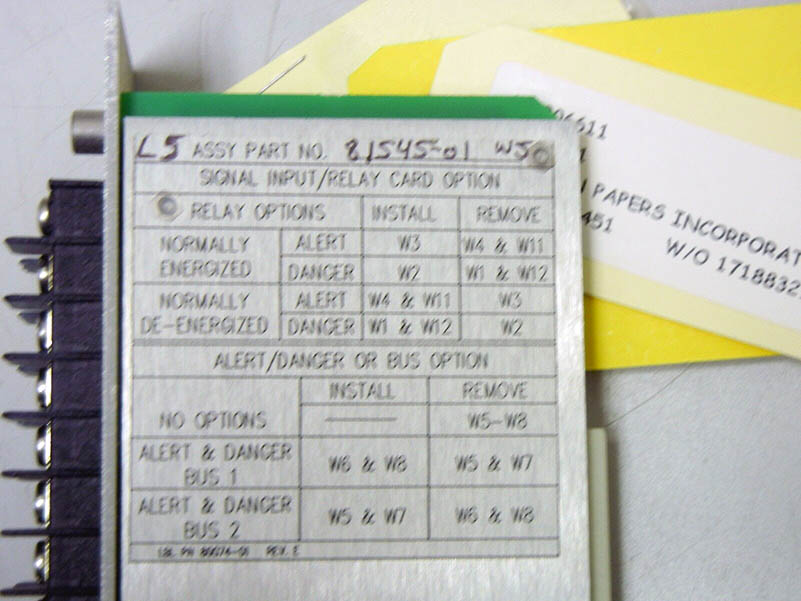 L5 ASSY PART NO. 81545-01 W50
SIGNAL INPUT/RELAY CARD OPTION
RELAY OPTIONS INSTALL REMOVE
NORMALLY ENERGIZED ALERT W3 W4 & W11
DANGER W2 W1 & W12
NORMALLY DE-ENERGIZED ALERT W4 & W11 W3
DANGER W1 & W12 W2
ALERT/DANGER OR BUS OPTION
INSTALL REMOVE
NO OPTIONS W5-W8
ALERT & DANGER BUS 1 W6 & W8 W5 & W7
ALERT & DANGER BUS 2 W5 & W7 W6 & W8
LBL PN REV. E
06611
PAPERS INCORPORAT
451 W/O 1718832